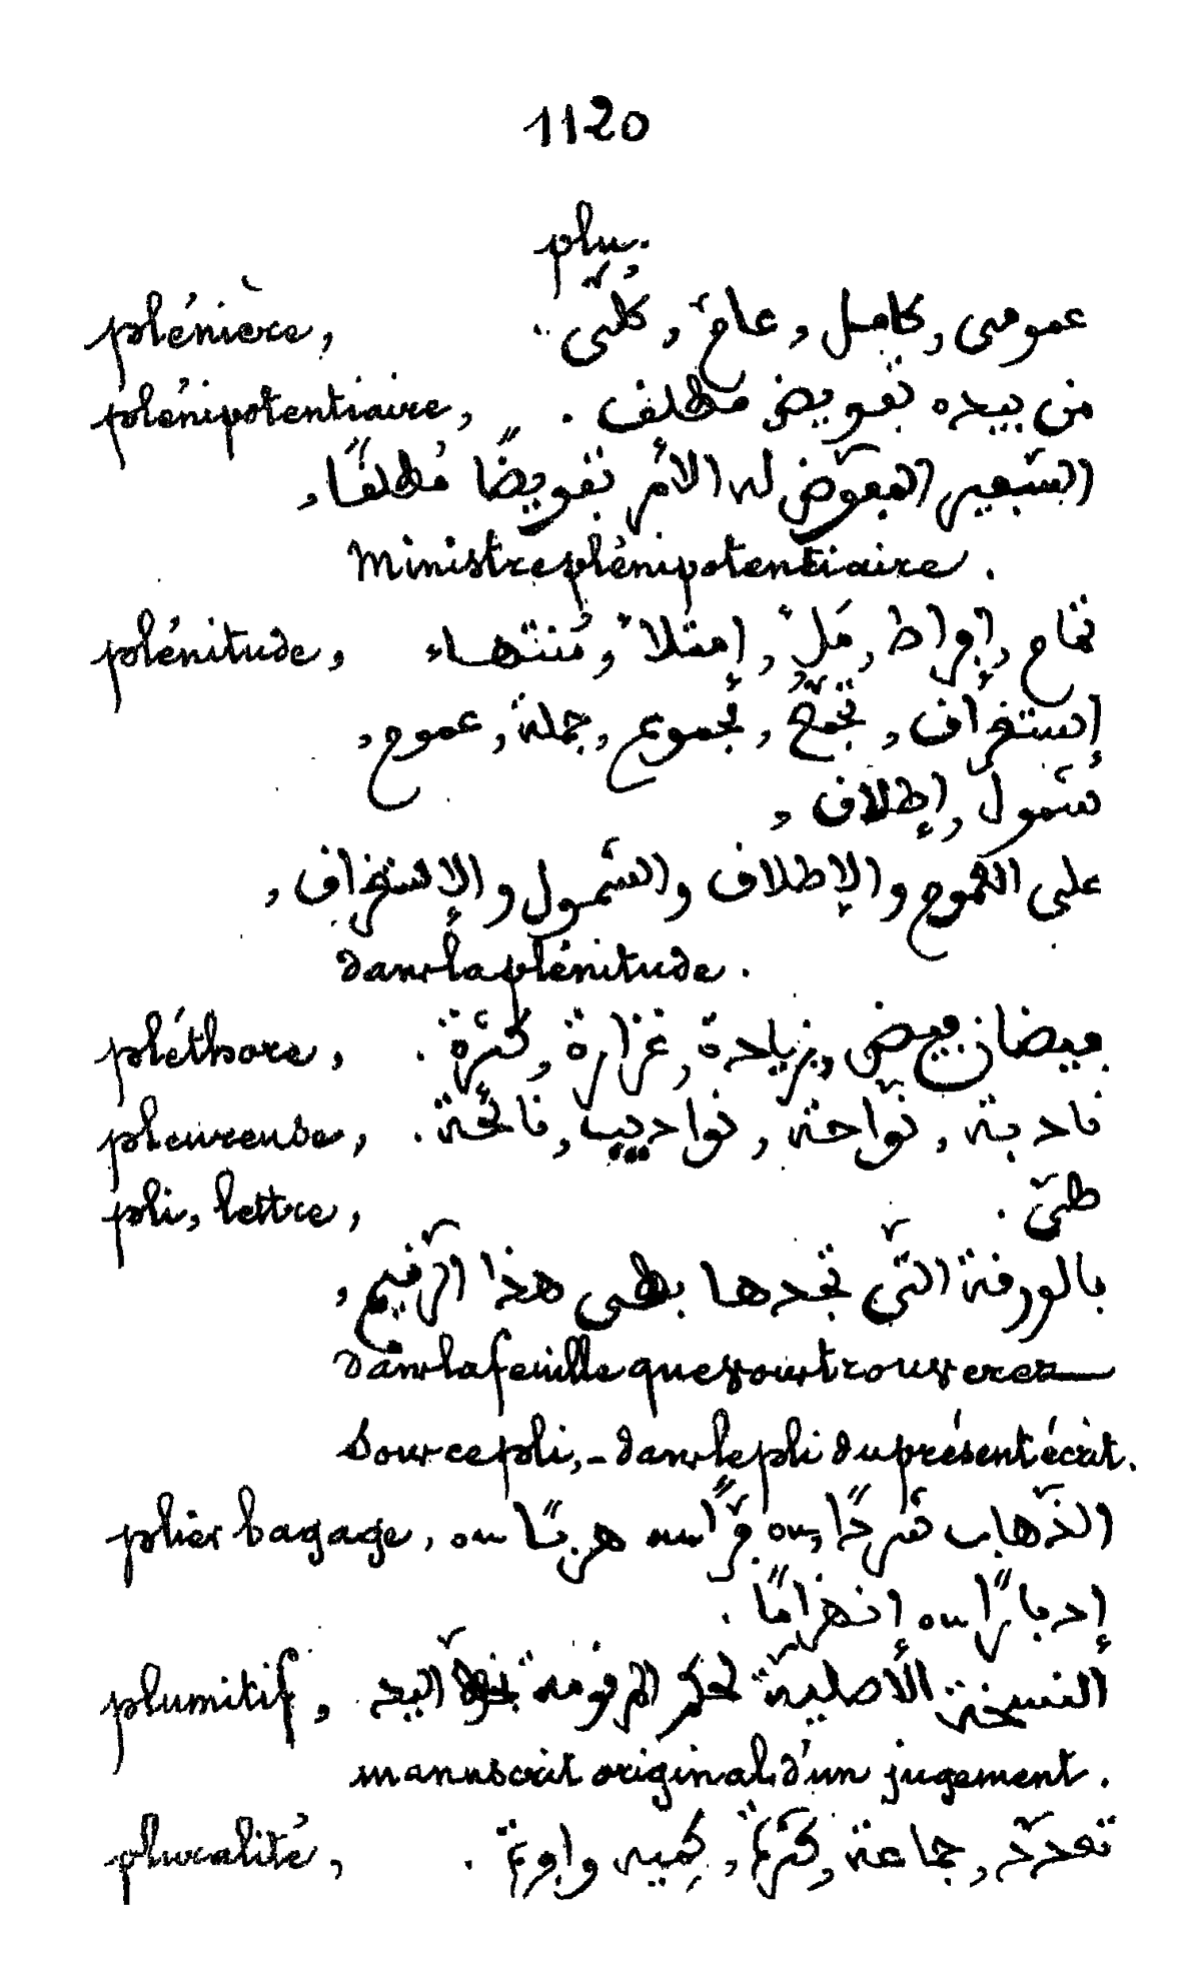 1120
plu.
plénière, عمومى, كامل, عامّ, كُلّىّ.
plénipotentiaire, من بيده تفويض مطلق.
السّفير المفوّض له الأمر تفويضًا مُطلقًا,
Ministre plénipotentiaire.
plénitude, تمام, إفراط, مَلْءٌ, إمتلاءٌ, مُنتهاء
إستغراق, تجمّعٌ, مجموع, جملة, عموم,
شمول, إطلاق,
على العموم والإطلاق والشّمول والإستغراق,
dans la plénitude.
pléthore, فيضان, فيض, زيادة, غزارة, كثرة.
pleureuse, نادبة, نوّاحة, نواديب, نائحة.
pli, lettre, طىّ.
بالورقة الّتى تجدها بطى هذا الرّقيم,
dans la feuille que vous trouverez
sous ce pli, - dans le pli du présent écrit.
plier bagage, الذّهاب شردًا, ou فرًّا ou هربًا ou
إدبارًا ou إنهزامًا.
plumitif, النسخة الأصليّة لحكم المرقومة بخطّ اليد
manuscrit original d'un jugement.
pluralité, تعدّد, جماعة, كثرة, كميه وافرة.